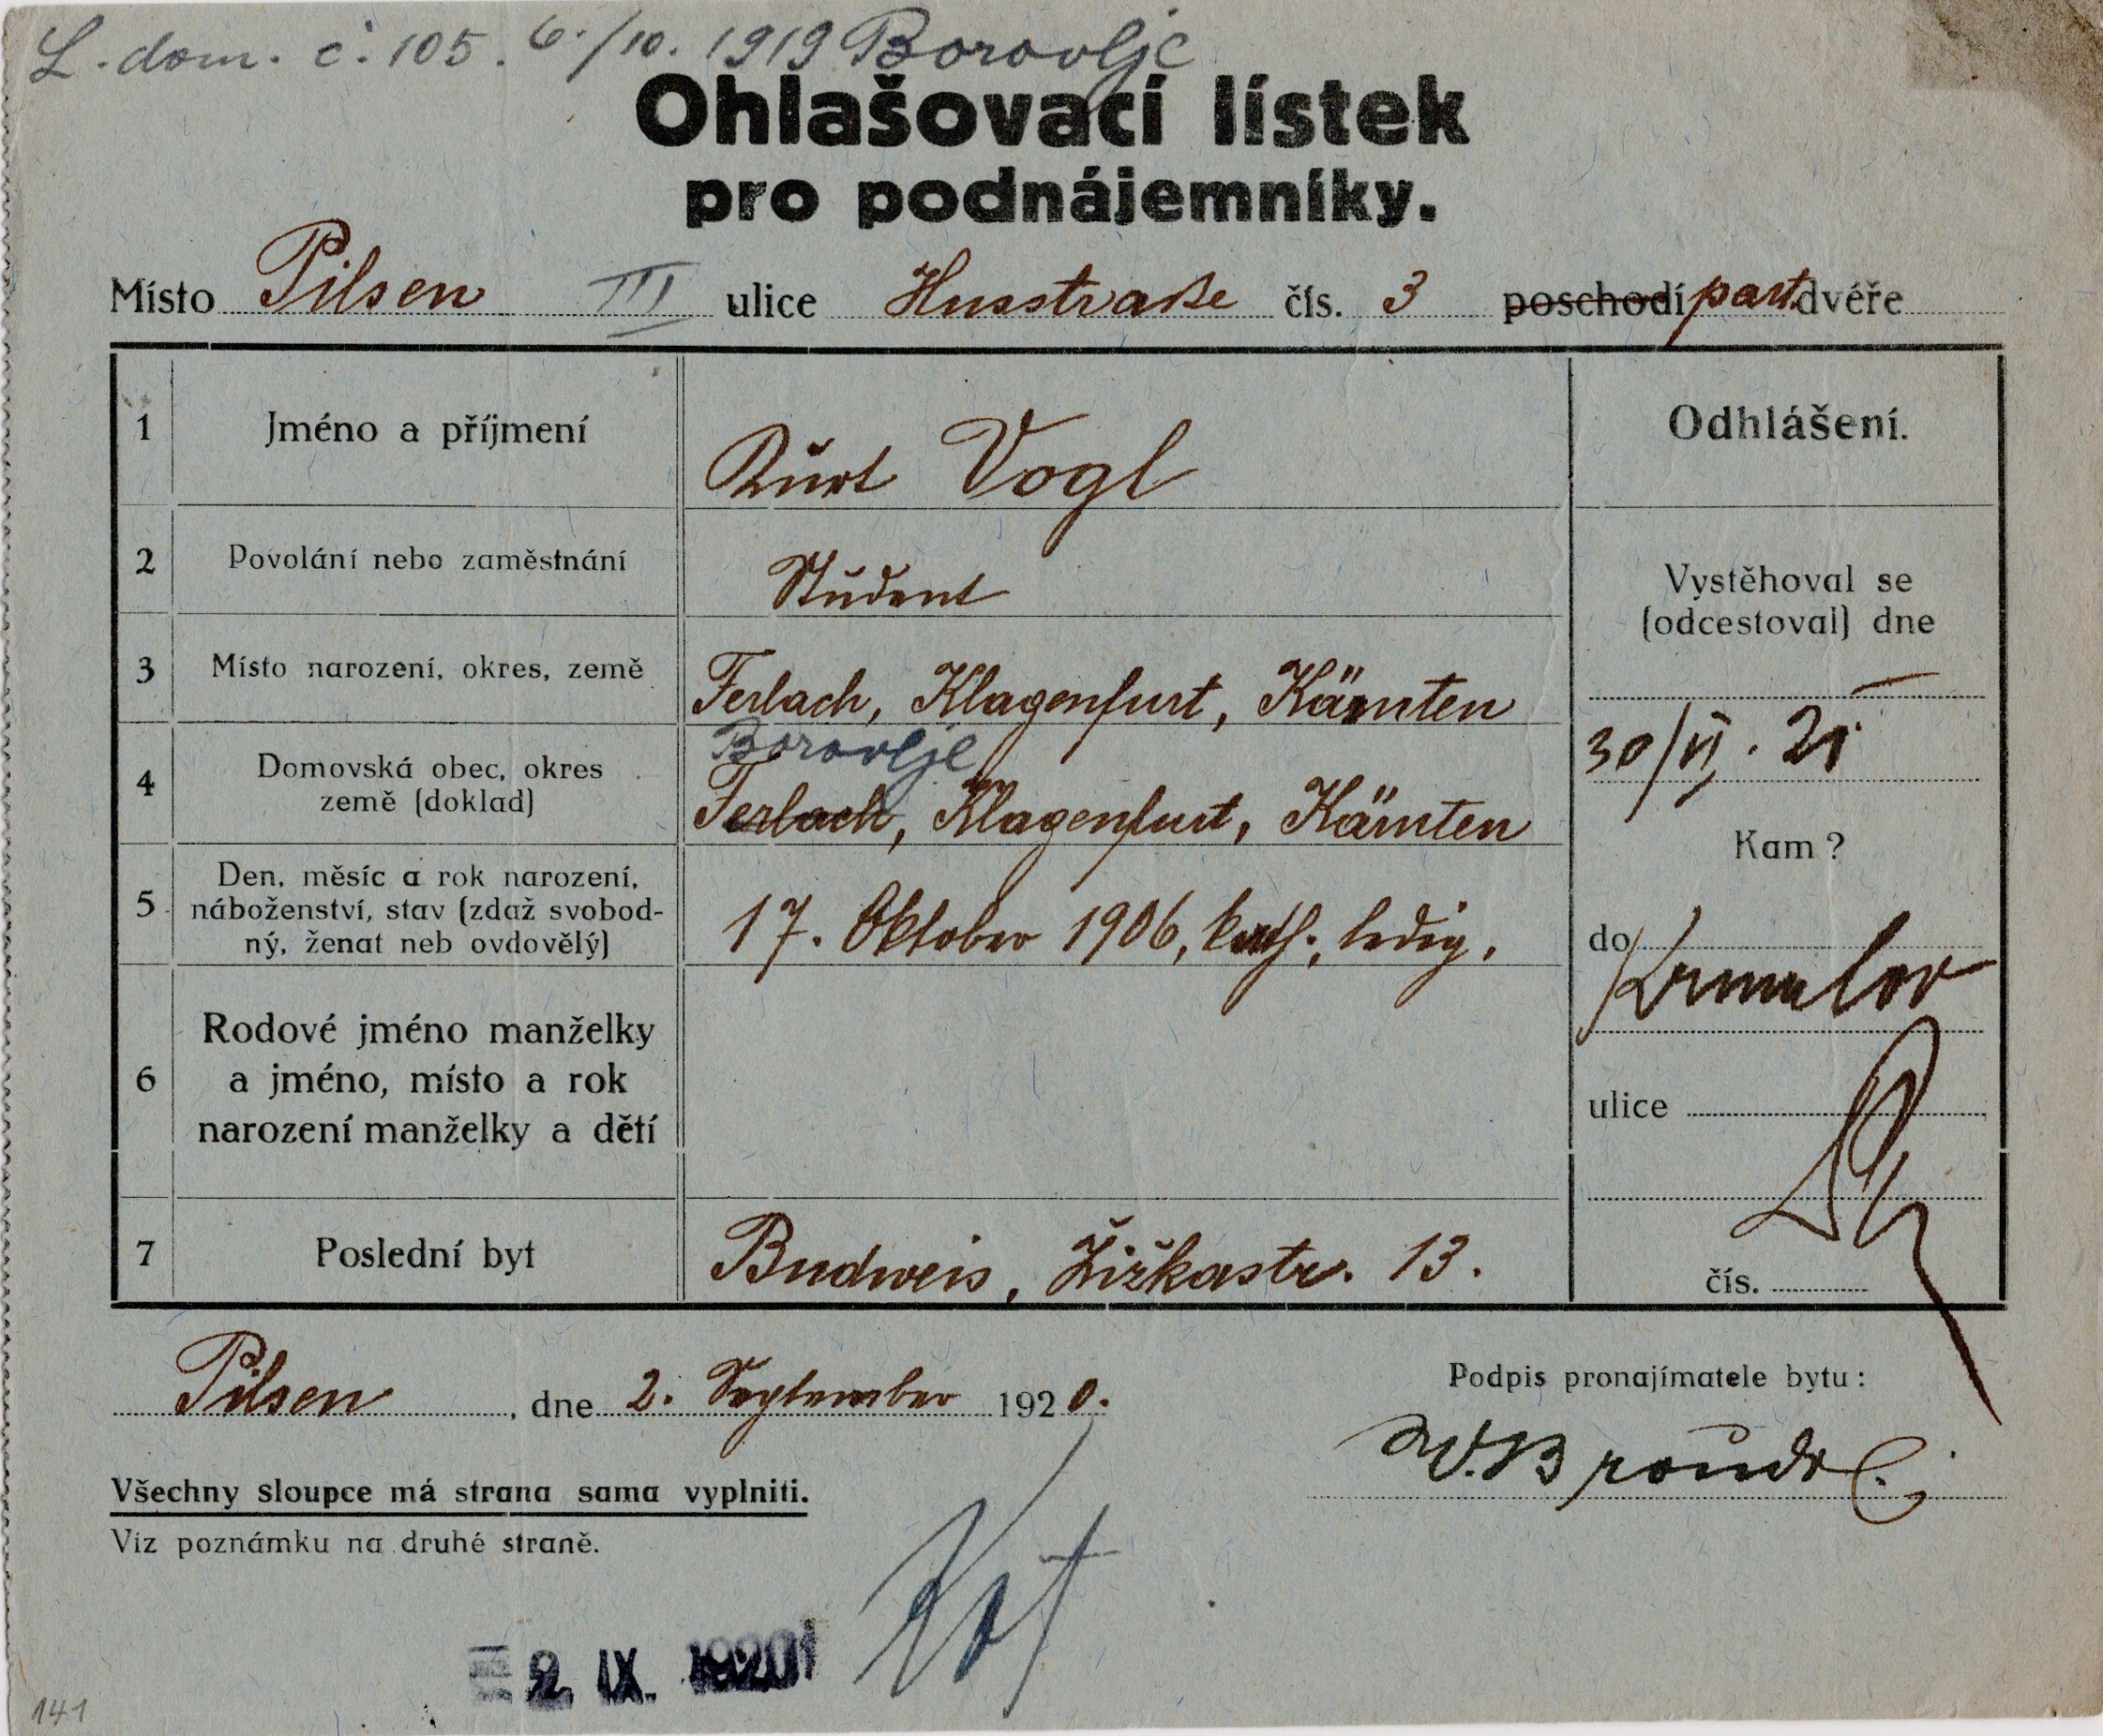 L. dom. č. 105. 6./10. 1919 Borovlje
Ohlašovací lístek
pro podnájemníky.
Místo Pilsen III ulice Husstraße čís. 3 poschodí part. dvéře
1 Jméno a příjmení Kurt Vogl
Odhlášení.
2 Povolání nebo zaměstnání Student
Vystěhoval se
(odcestoval) dne
3 Místo narození, okres, země Ferlach, Klagenfurt, Kärnten
30/VI. 21
Borovlje
4 Domovská obec, okres
země (doklad) Ferlach, Klagenfurt, Kärnten
Kam?
5 Den, měsíc a rok narození,
náboženství, stav (zdaž svobod-
ný, ženat neb ovdovělý) 17. Oktober 1906, kath., ledig.
do Krumlov
6 Rodové jméno manželky
a jméno, místo a rok
narození manželky a dětí
ulice
7 Poslední byt Budweis, Žižkastr. 13.
čís.
Pilsen, dne 2. September 1920.
Podpis pronajímatele bytu:
Všechny sloupce má strana sama vyplniti.
Viz poznámku na druhé straně.
2. IX. 1920
141